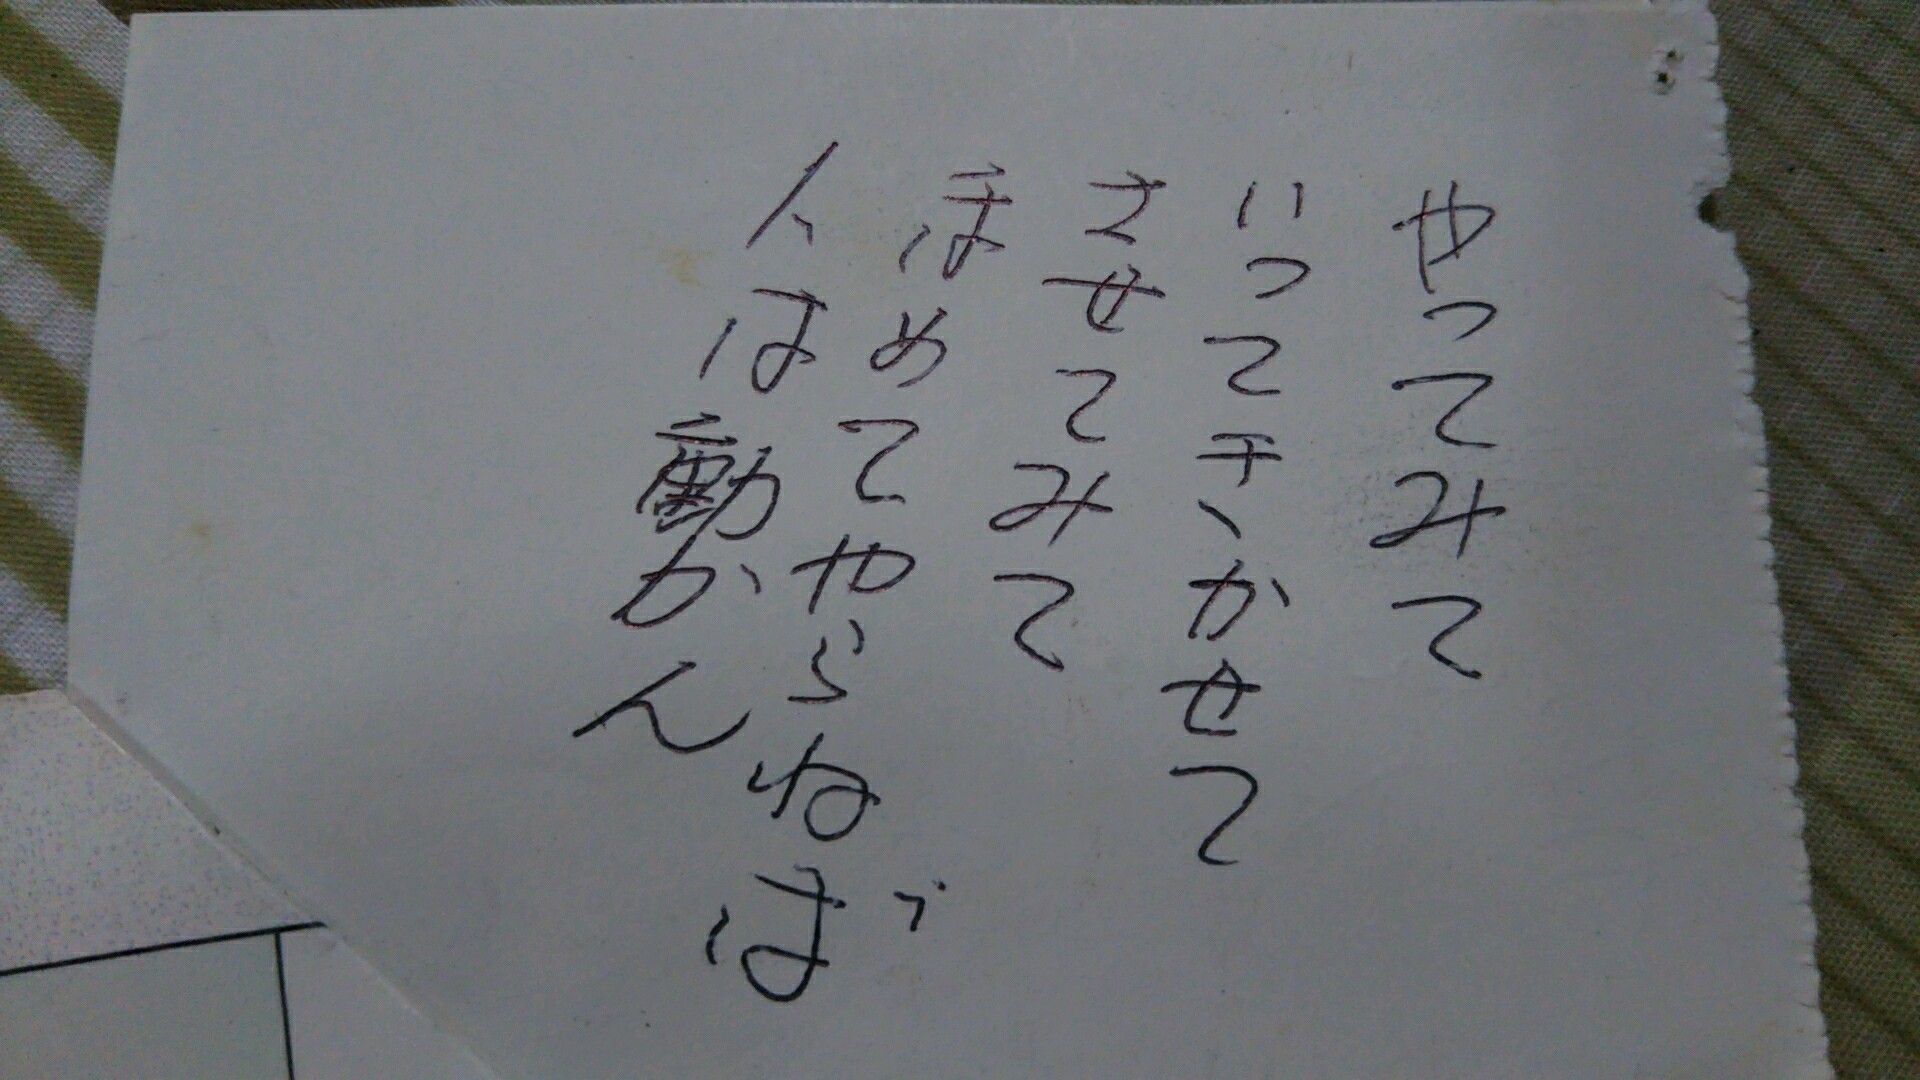 やってみて
いってきかせて
させてみて
ほめてやらねば
人は動かん